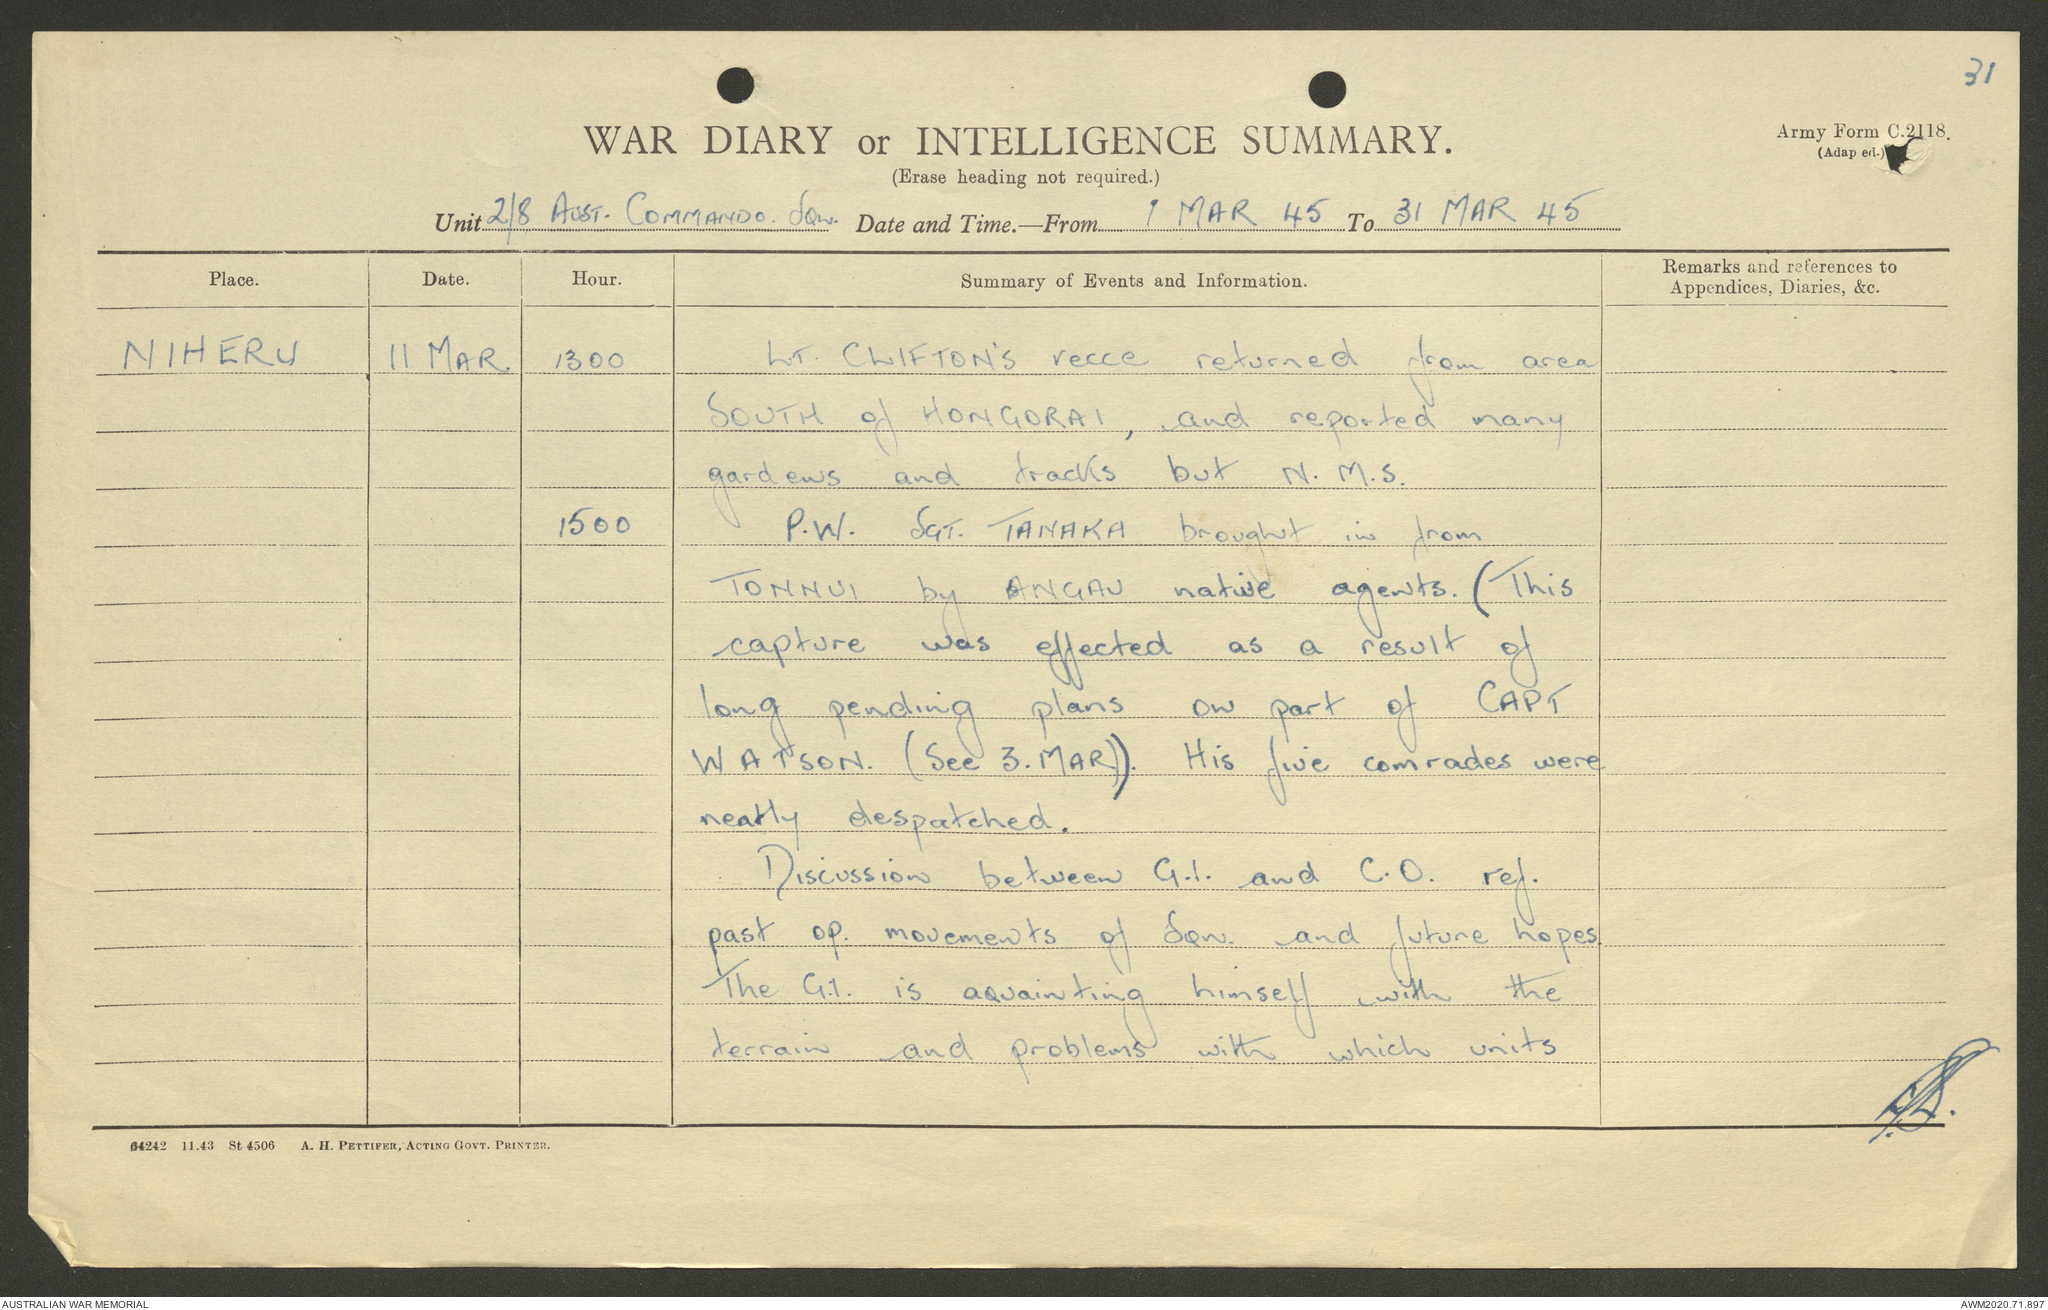 31
WAR DIARY or INTELLIGENCE SUMMARY.
Army Form C.2118.
(Adap ed.)
(Erase heading not required.)
Unit 2/8 AUST. COMMANDO. Sqn. Date and Time.—From 1 MAR 45 To 31 MAR 45
Place. Date. Hour. Summary of Events and Information. Remarks and references to
Appendices, Diaries, &c.
NIHERU 11 MAR. 1300 LT. CLIFTON'S recce returned from area
SOUTH of HONGORAI, and reported many
gardens and tracks but N.M.S.
1500 P.W. SGT. TANAKA brought in from
TONNUI by ANGAU native agents. (This
capture was effected as a result of
long pending plans on part of CAPT
WATSON. (See 3. MAR)). His five comrades were
neatly despatched.
Discussion between G.1. and C.O. ref.
past op. movements of Sqn. and future hopes.
The G.1. is aquainting himself with the
terrain and problems with which units
64242 11.43 St 4506 A. H. PETTIFER, ACTING GOVT. PRINTER.
AUSTRALIAN WAR MEMORIAL
AWM2020.71.897